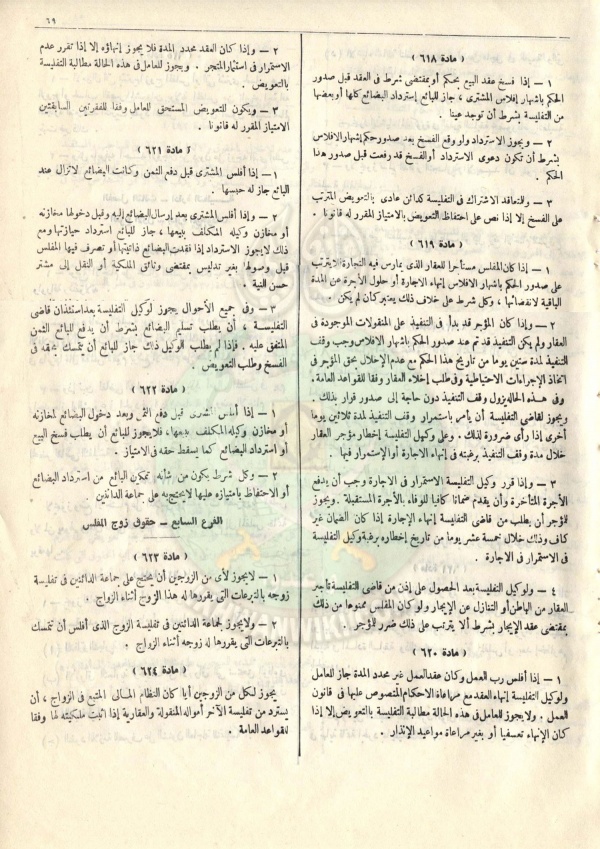 ٦٩
( مادة ٦١٨ )
١ — إذا فسخ عقد البيع بحكم أو بمقتضى شرط فى العقد قبل صدور
الحكم باشهار إفلاس المشترى ، جاز للبائع إسترداد البضائع كلها أو بعضها
من التفليسة بشرط أن توجد عينا .
٢ — ويجوز الاسترداد ولو وقع الفسخ بعد صدور حكم إشهار الافلاس
بشرط أن تكون دعوى الاسترداد أو الفسخ قد رفعت قبل صدور هذا
الحكم .
٣ — وللمتعاقد الاشتراك فى التفليسة كدائن عادى بالتعويض المترتب
على الفسخ إلا إذا نص على احتفاظ التعويض بالامتياز المقرر له قانونا .
( مادة ٦١٩ )
١ — إذا كان المفلس مستأجرا للعقار الذى يمارس فيه التجارة لا يترتب
على صدور الحكم باشهار الافلاس إنهاء الإجارة أو حلول الأجرة عن المدة
الباقية لانقضائها ، وكل شرط على خلاف ذلك يعتبر كأن لم يكن .
٢ — وإذا كان المؤجر قد بدأ فى التنفيذ على المنقولات الموجودة فى
العقار ولم يكن التنفيذ قد تم عند صدور الحكم باشهار الافلاس وجب وقف
التنفيذ لمدة ستين يوما من تاريخ هذا الحكم مع عدم الإخلال بحق المؤجر فى
اتخاذ الإجراءات الاحتياطية وفى طلب إخلاء العقار وفقا للقواعد العامة .
وفى هذه الحالة يزول وقف التنفيذ دون حاجة إلى صدور قرار بذلك .
ويجوز لقاضى التفليسة أن يأمر باستمرار وقف التنفيذ لمدة ثلاثين يوما
أخرى إذا رأى ضرورة لذلك . وعلى وكيل التفليسة إخطار مؤجر العقار
خلال مدة وقف التنفيذ برغبته فى إنهاء الاجارة أو الإستمرار فيها .
٣ — وإذا قرر وكيل التفليسة الاستمرار فى الاجارة وجب أن يدفع
الأجرة المتأخرة وأن يقدم ضمانا كافيا للوفاء بالأجرة المستقبلة . ويجوز
للمؤجر أن يطلب من قاضى التفليسة إنهاء الإجارة إذا كان الضمان غير
كاف وذلك خلال خمسة عشر يوما من تاريخ إخطاره برغبة وكيل التفليسة
فى الاستمرار فى الاجارة .
٤ — ولوكيل التفليسة بعد الحصول على إذن من قاضى التفليسة تأجير
العقار من الباطن أو التنازل عن الإيجار ولو كان المفلس ممنوعا من ذلك
بمقتضى عقد الإيجار بشرط ألا يترتب على ذلك ضرر للمؤجر .
( مادة ٦٢٠ )
١ — إذا أفلس رب العمل وكان عقد العمل غير محدد المدة جاز للعامل
ولوكيل التفليسة إنهاء العقد مع مراعاة الاحكام المنصوص عليها فى قانون
العمل . ولا يجوز للعامل فى هذه الحالة مطالبة التفليسة بالتعويض إلا إذا
كان الإنهاء تعسفيا أو بغير مراعاة مواعيد الإنذار .
٢ — وإذا كان العقد محدد المدة فلا يجوز إنهاؤه إلا إذا تقرر عدم
الاستمرار فى استثمار المتجر . ويجوز للعامل فى هذه الحالة مطالبة التفليسة
بالتعويض .
٣ — ويكون للتعويض المستحق للعامل وفقا للفقرتين السابقتين
الامتياز المقرر له قانونا .
( مادة ٦٢١ )
١ — إذا أفلس المشترى قبل دفع الثمن وكانت البضائع لاتزال عند
البائع جاز له حبسها .
٢ — وإذا أفلس المشترى بعد إرسال البضائع إليه وقبل دخولها مخازنه
أو مخازن وكيله المكلف ببيعها ، جاز للبائع استرداد حيازتها ومع
ذلك لا يجوز الاسترداد إذا فقدت البضائع ذاتيتها أو تصرف فيها المفلس
قبل وصولها بغير تدليس بمقتضى وثائق الملكية أو النقل إلى مشتر
حسن النية .
٣ — وفى جميع الأحوال يجوز لوكيل التفليسة بعد استئذان قاضى
التفليسة ، أن يطلب تسليم البضائع بشرط أن يدفع للبائع الثمن
المتفق عليه . فإذا لم يطلب الوكيل ذلك جاز للبائع أن يتمسك بحقه فى
الفسخ وطلب التعويض .
( مادة ٦٢٢ )
١ — إذا أفلس المشترى قبل دفع الثمن وبعد دخول البضائع لمخازنه
أو مخازن وكيله المكلف ببيعها ، فلا يجوز للبائع أن يطلب فسخ البيع
أو استرداد البضائع كما يسقط حقه فى الامتياز .
٢ — وكل شرط يكون من شأنه تمكين البائع من استرداد البضائع
أو الاحتفاظ بامتيازه عليها لا يحتج به على جماعة الدائنين .
الفرع السابع — حقوق زوج المفلس
( مادة ٦٢٣ )
١ — لا يجوز لأى من الزوجين أن يحتج على جماعة الدائنين فى تفليسة
زوجه بالتبرعات التى يقررها له هذا الزوج أثناء الزواج .
٢ — ولا يجوز لجماعة الدائنين فى تفليسة الزوج الذى أفلس أن تتمسك
بالتبرعات التى يقررها له زوجه أثناء الزواج .
( مادة ٦٢٤ )
يجوز لكل من الزوجين أيا كان النظام المالى المتبع فى الزواج ، أن
يسترد من تفليسة الآخر أمواله المنقولة والعقارية إذا أثبت ملكيته لها وفقا
للقواعد العامة .